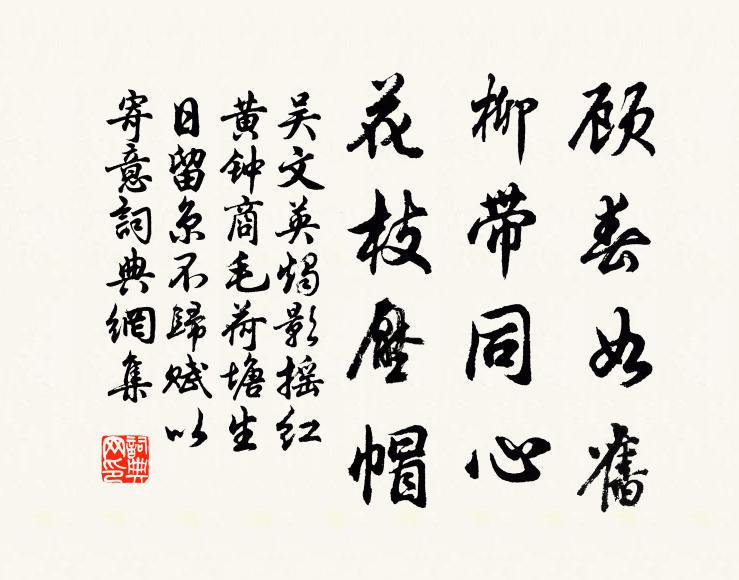 顾春如舊
柳带同心
花枝壓帽
吴文英燭影摇红
黄钟商毛荷塘生
日留京不歸赋以
寄意詞典網集
詞典网印